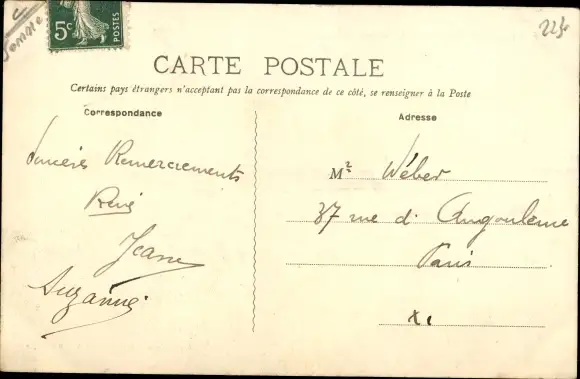 C
Somme
POSTES
5c
223e
CARTE POSTALE
Certains pays étrangers n'acceptant pas la correspondance de ce côté, se renseigner à la Poste
Correspondance
Adresse
Sincères Remerciements
René
Jeanne
Suzanne
Mr Wéber
37 rue d'Angouleme
Paris
XI